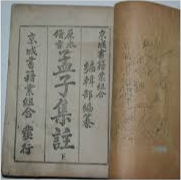 京城書籍業組合
編輯部編纂
原本備旨
孟子集註
下
京城書籍業組合發行